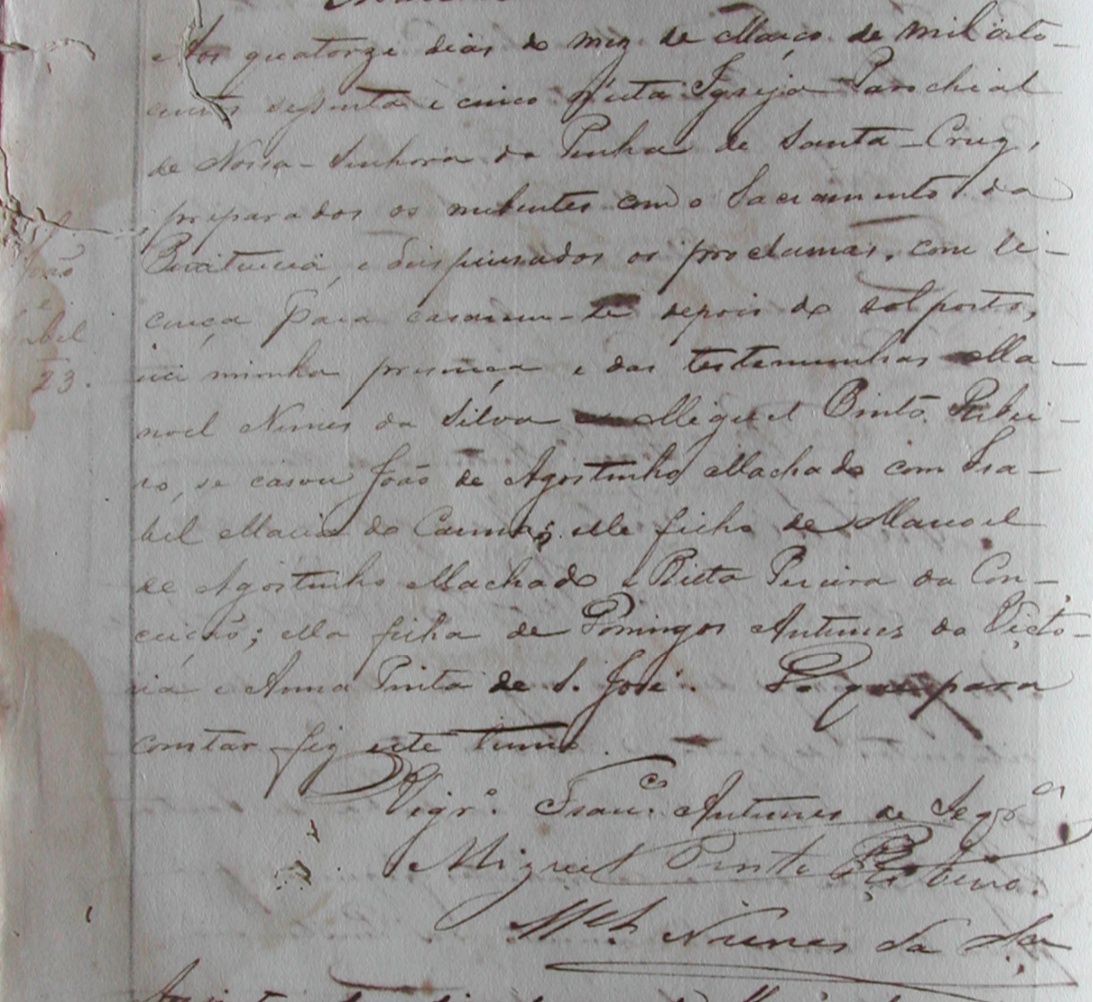 Aos quatorze dias do mez de Março de mil oito-
centos setenta e cinco n'esta Igreja Parochial
de Nossa-Senhora da Penha de Santa-Cruz,
preparados os nubentes com o Sacramento da
Penitencia, e dispensados os proclamas, com li-
cença para casarem-se depois do sol posto,
em minha presença e das testemunhas Ma-
noel Nunes da Silva Miguel Pinto Ribei-
ro, se casou João de Agostinho Machado com Isa-
bel Maria do Carmo; elle filho de Manoel
de Agostinho Machado e Rita Pereira da Con-
ceição; ella filha de Domingos Antunes da Victo-
ria e Anna Pinta de S. José. Do que para
constar fiz este termo.
João
e
Isabel
23.
Vigr.º Franc.co Antunes de
Miguel Pinto Ribeiro.
M.el Nunes da Sa